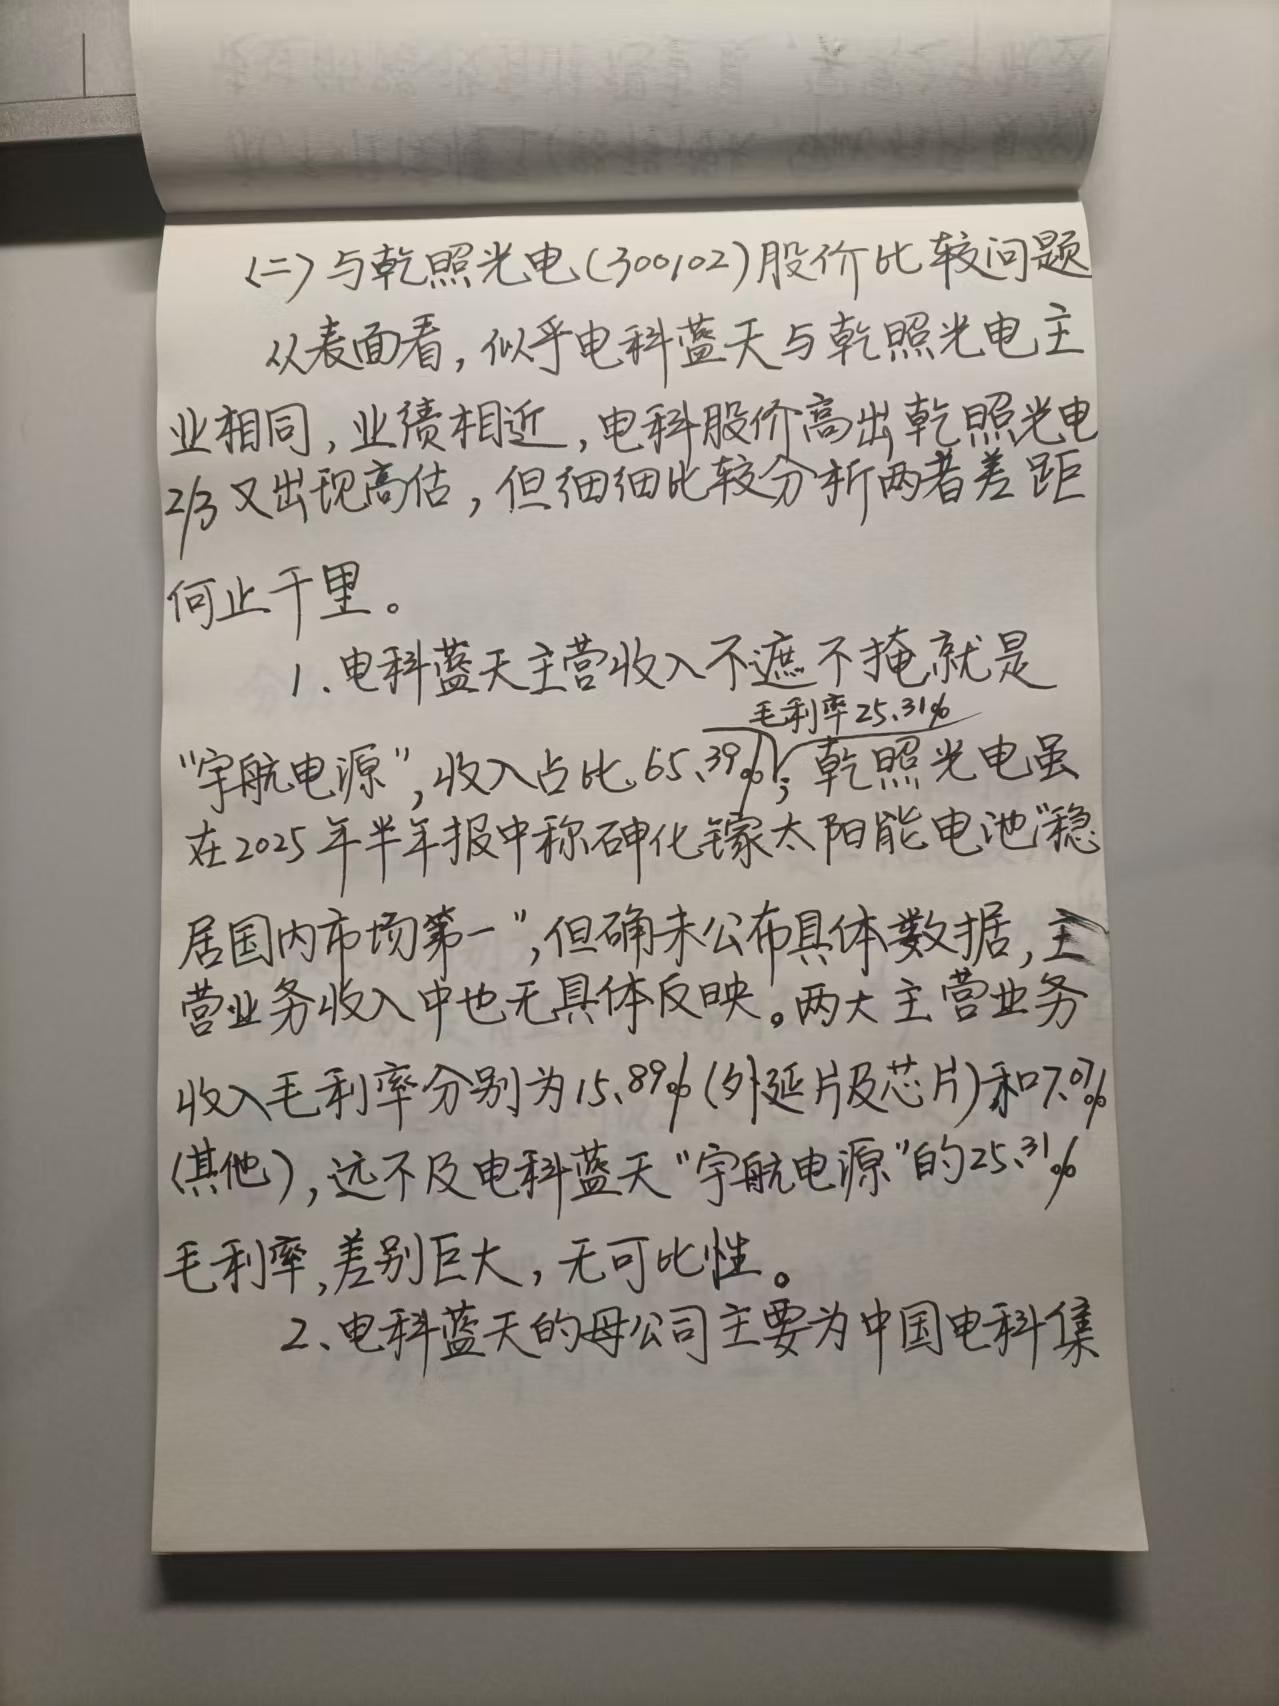 (二)与乾照光电(300102)股价比较问题
从表面看,似乎电科蓝天与乾照光电主
业相同,业绩相近,电科股价高出乾照光电
2/3又出现高估,但细细比较分析两者差距
何止千里。
1、电科蓝天主营收入不遮不掩就是
毛利率25.31%
“宇航电源”,收入占比65.39%;乾照光电虽
在2025年半年报中称砷化镓太阳能电池“稳
居国内市场第一”,但确未公布具体数据,主
营业务收入中也无具体反映。两大主营业务
收入毛利率分别为15.89%(外延片及芯片)和7.07%
(其他),远不及电科蓝天“宇航电源”的25.31%
毛利率,差别巨大,无可比性。
2、电科蓝天的母公司主要为中国电科集